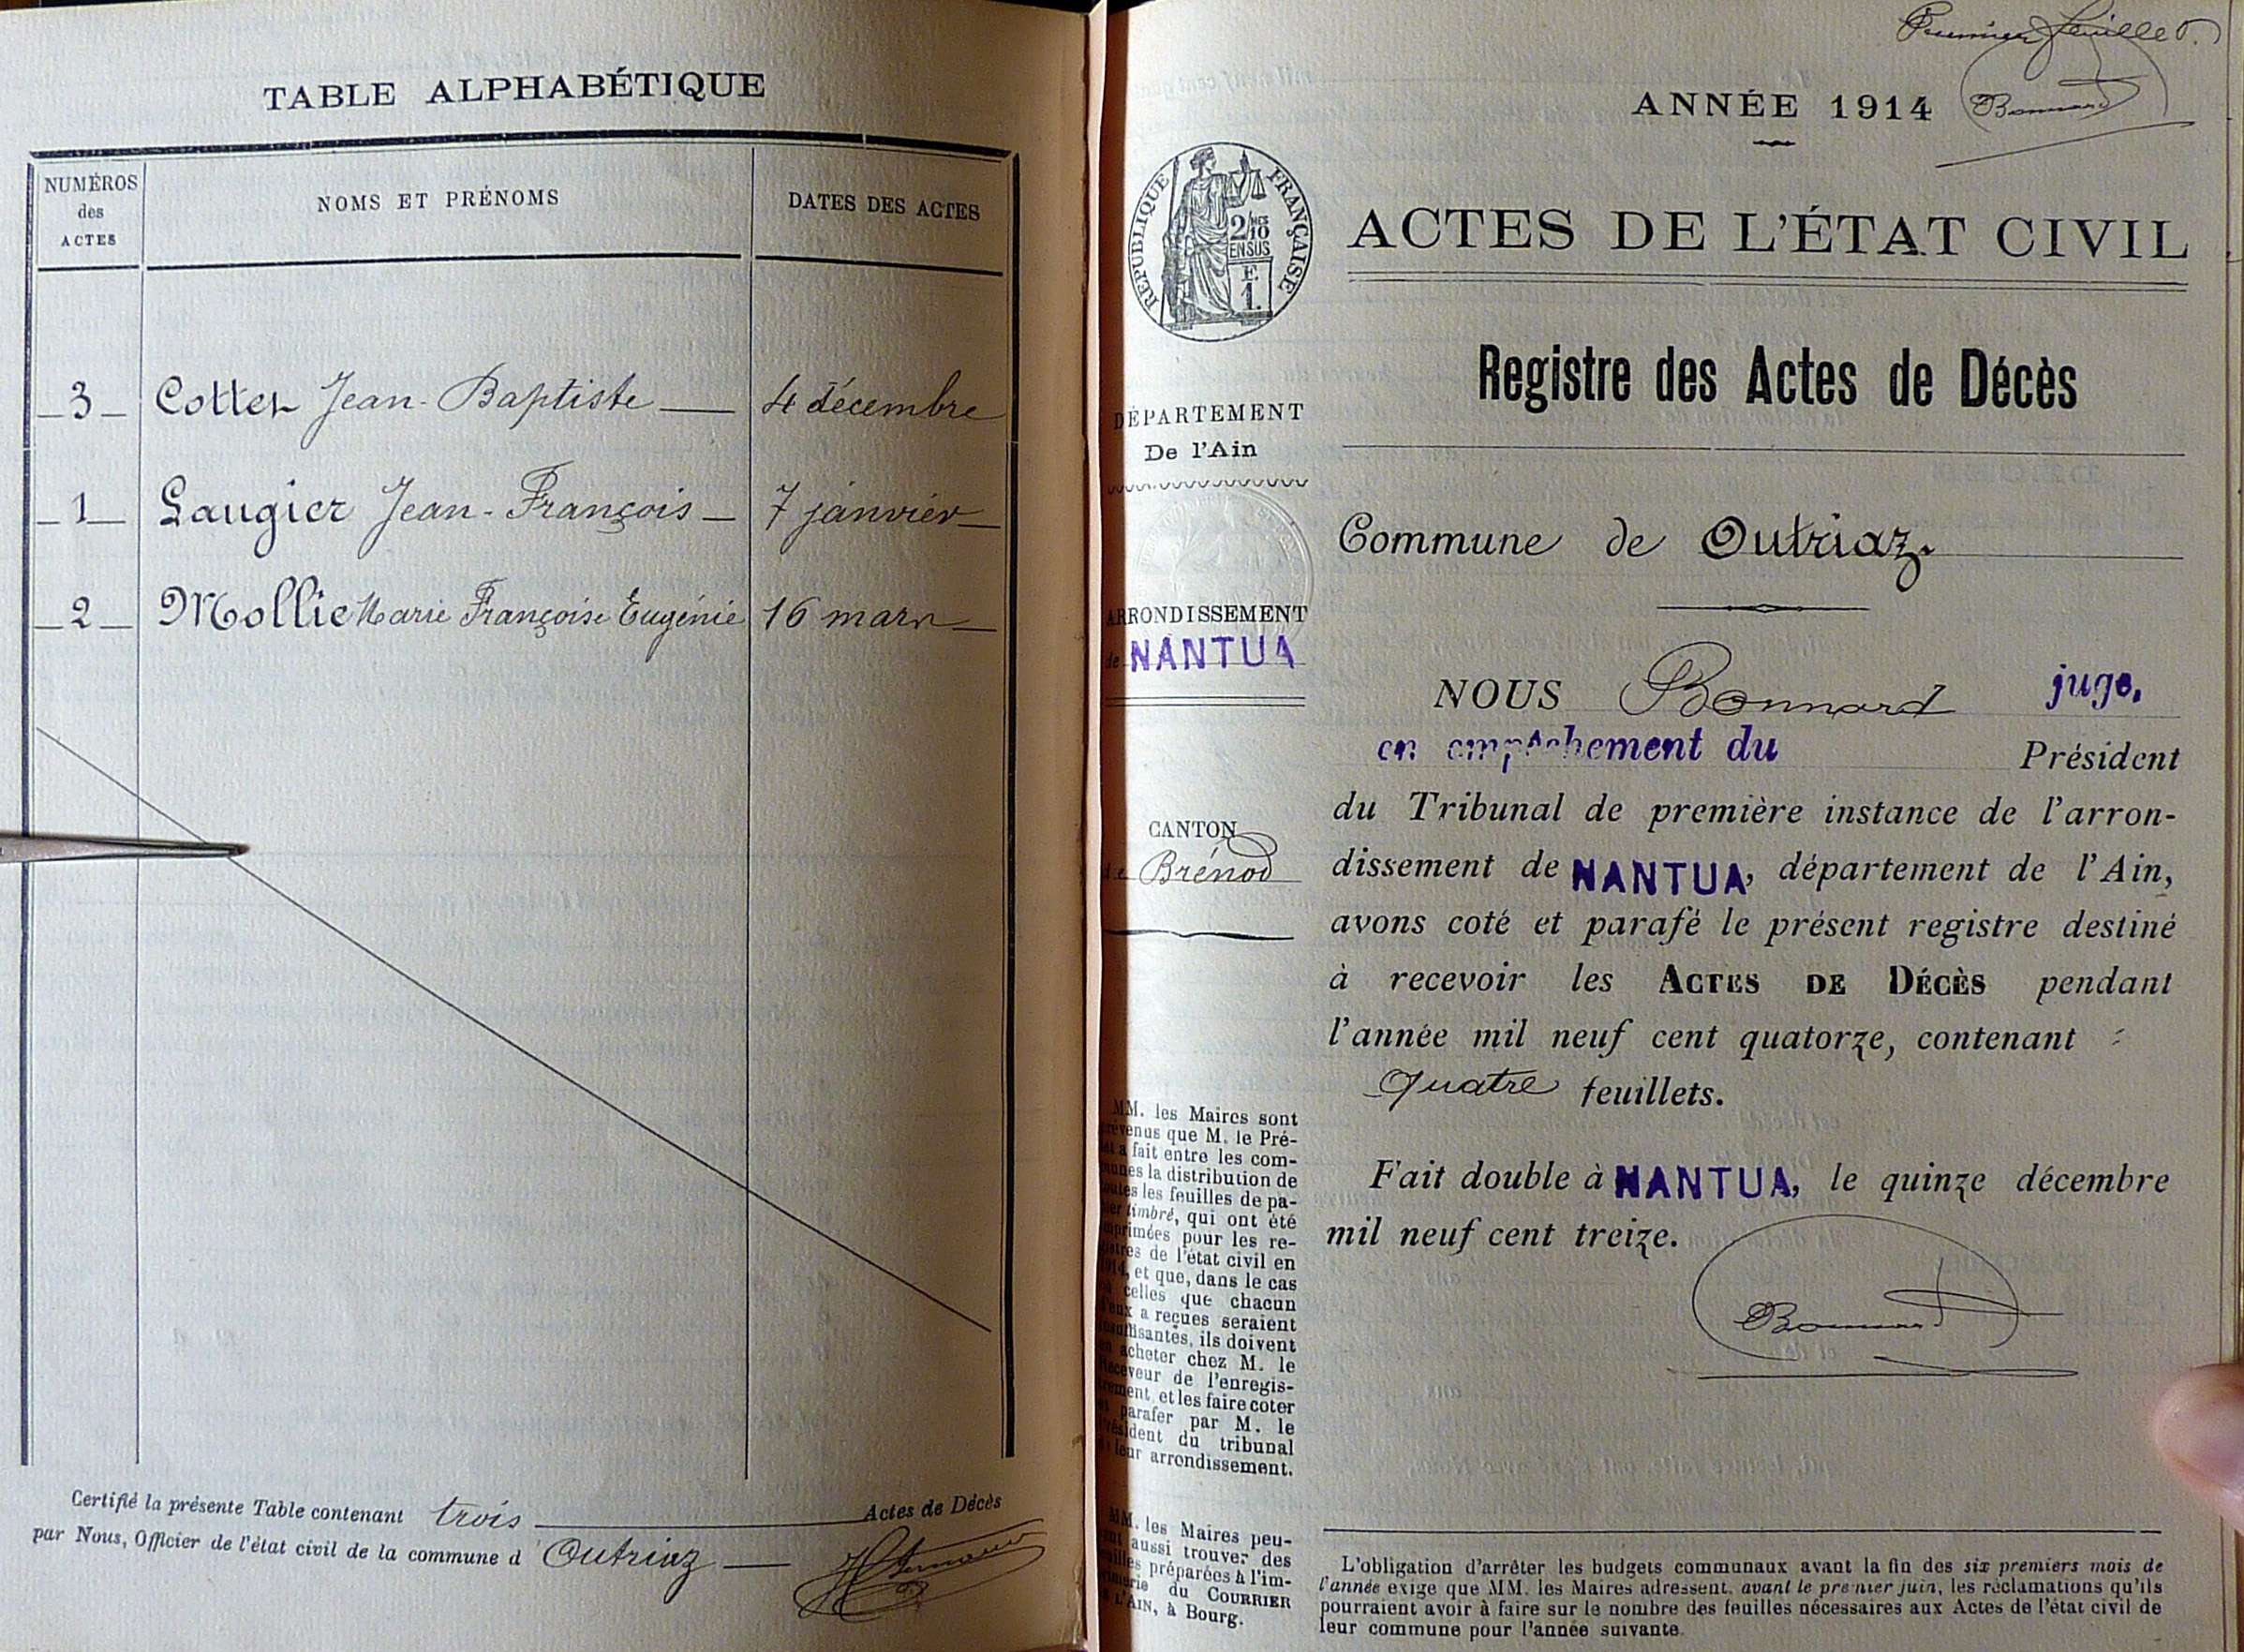 TABLE ALPHABÉTIQUE
NUMÉROS
des
ACTES
NOMS ET PRÉNOMS
DATES DES ACTES
3 Cottet Jean-Baptiste 4 décembre
1 Laugier Jean-François 7 janvier
2 Mollie Marie Françoise Eugénie 16 mars
Certifié la présente Table contenant trois Actes de Décès
par Nous, Officier de l'état civil de la commune d Outriaz
Premier feuillet.
Bonnard
ANNÉE 1914
RÉPUBLIQUE FRANÇAISE
2/10
EN SUS
E
1.
ACTES DE L'ÉTAT CIVIL
Registre des Actes de Décès
DÉPARTEMENT
De l'Ain
Commune de Outriaz.
ARRONDISSEMENT
de NANTUA
CANTON
de Brénod
NOUS Bonnard juge,
en empêchement du Président
du Tribunal de première instance de l'arron-
dissement de NANTUA, département de l'Ain,
avons coté et parafé le présent registre destiné
à recevoir les ACTES DE DÉCÈS pendant
l'année mil neuf cent quatorze, contenant
Quatre feuillets.
Fait double à NANTUA, le quinze décembre
mil neuf cent treize.
Bonnard
MM. les Maires sont
prévenus que M. le Pré-
fait entre les com-
munes la distribution de
toutes les feuilles de pa-
pier timbré, qui ont été
imprimées pour les re-
gistres de l'état civil en
1914, et que, dans le cas
où celles que chacun
d'eux a reçues seraient
insuffisantes, ils doivent
en acheter chez M. le
Receveur de l'enregis-
trement, et les faire coter
et parafer par M. le
Président du tribunal
de leur arrondissement.
MM. les Maires peu-
vent aussi trouver des
feuilles préparées à l'im-
primerie du COURRIER
DE L'AIN, à Bourg.
L'obligation d'arrêter les budgets communaux avant la fin des six premiers mois de
l'année exige que MM. les Maires adressent, avant le premier juin, les réclamations qu'ils
pourraient avoir à faire sur le nombre des feuilles nécessaires aux Actes de l'état civil de
leur commune pour l'année suivante.